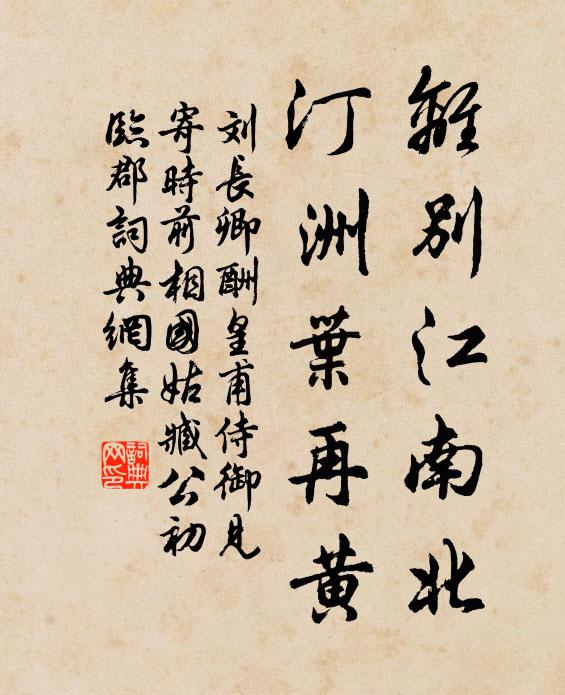 離別江南北
汀洲葉再黃
刘長卿酬皇甫侍御見
寄時前相國姑臧公初
臨郡詞典網集
詞典
网印